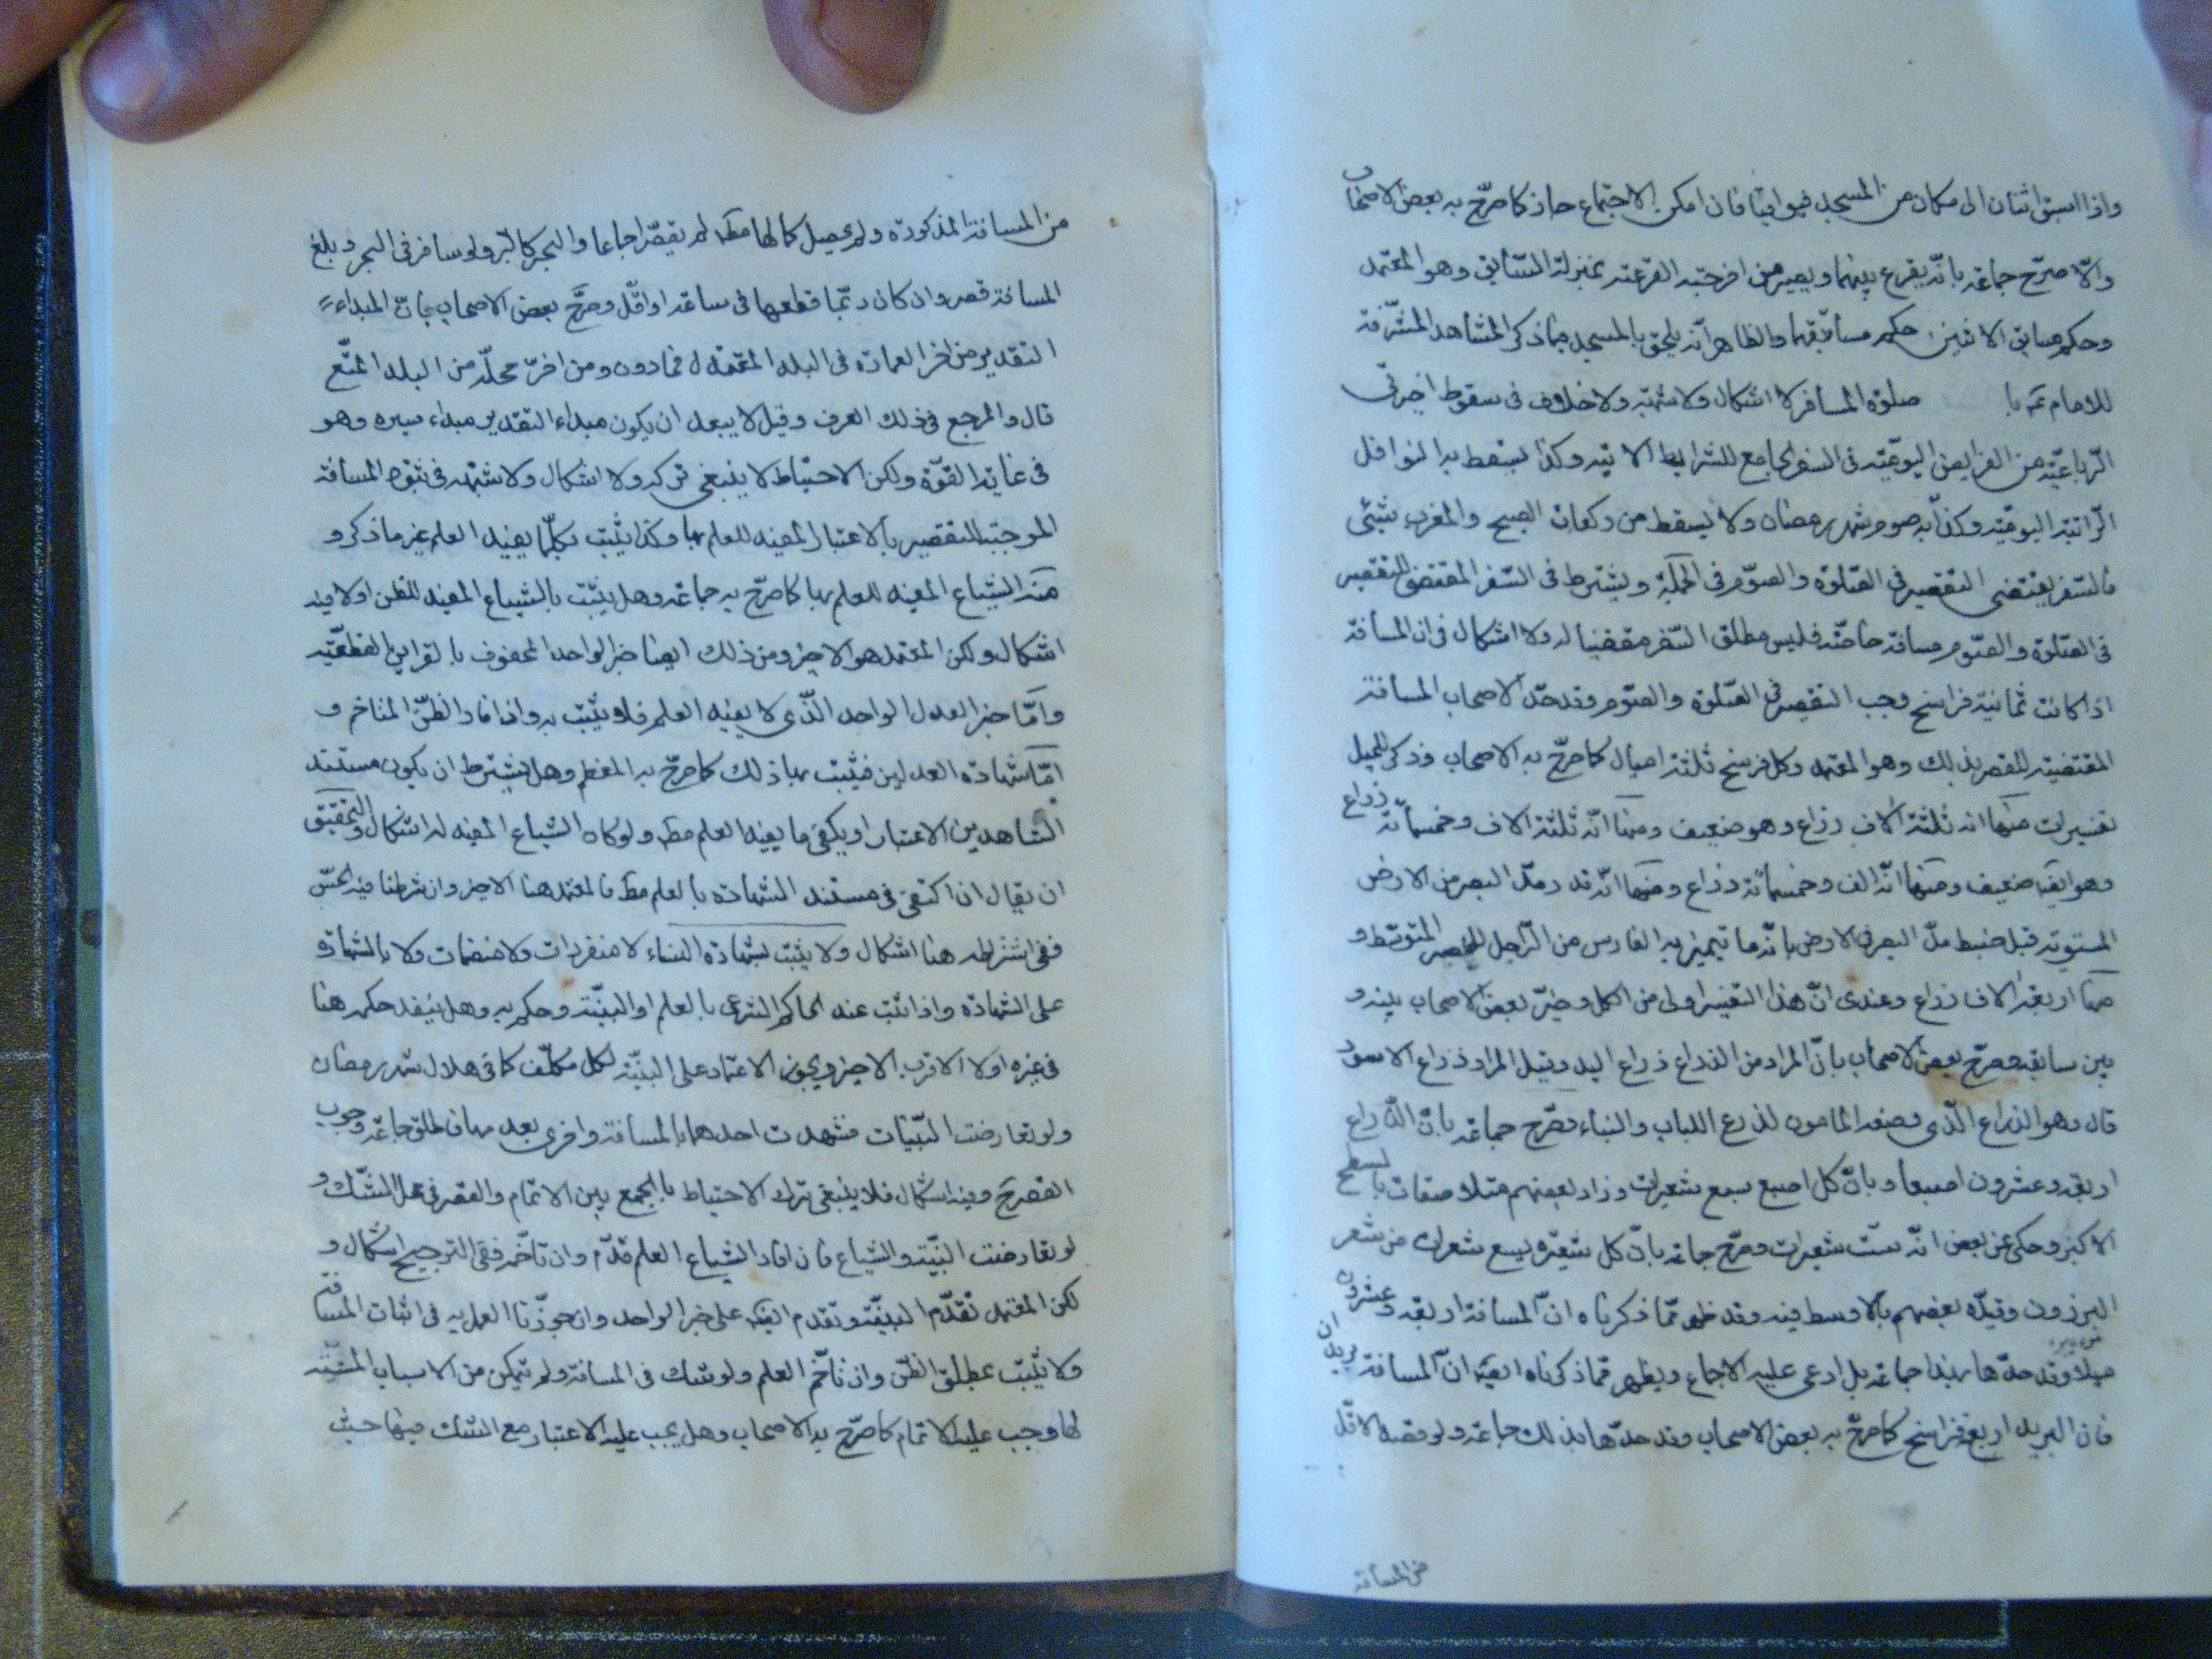 واذا استبق اثنان الى مكان من المسجد فيوافيا فان امكن الاجتماع جاز كما صرّح به بعض الاصحاب
والّا صرّح جماعة بانّه يقرع بينهما ويصير من اخرجته القرعة بمنزلة السّابق وهو المعتمد
وحكم مسابق الاثنين حكم مسابقتهما والظاهر انّه يلحق بالمسجد فيما ذكر المشاهد المشرّفة
للامام صلوة المسافر لا اشكال ولا شبهة ولا خلاف فى سقوط اخيرتى
الرّباعيّة من الفرايض اليوميّة فى السفر الجامع للشرايط الاتية وكذا يسقط به النوافل
الرّاتبة اليوميّة وكذا به صوم شهر رمضان ولا يسقط من ركعات الصبح والمغرب شئ
فالسّفر يقتضى التقصير فى الصّلوة والصّوم فى الجملة ويشترط فى السّفر المقتضى للتقصير
فى الصّلوة والصّوم مسافة خاصّة فليس مطلق السّفر مقتضيا له ولا اشكال فى ان المسافة
اذا كانت ثمانية فراسخ وجب التقصير فى الصّلوة والصّوم وقد حدّ الاصحاب المسافة
المقتضية للقصر بذلك وهو المعتمد وكل فرسخ ثلثة اميال كما صرّح به الاصحاب وذكر للميل
تفسيرات منها انه ثلثة الاف ذراع وهو ضعيف ومنها انّه ثلثة الاف وخمسمائة ذراع
وهو ايضَ ضعيف ومنها انّه الف وخمسمائة ذراع ومنها انّه قدر مدّ البصر من الارض
المستوية قبل ضبط مدّ البصر فى الارض بانّه ما تيميز به الفارس من الرّاجل للبصر المتوسّط و
منها اربعة الاف ذراع وعندى انّ هذا التفسير اولى من الكل وخيّر بعض الاصحاب بينه و
بين سابقه وصرّح بعض الاصحاب بانّ المراد من الذراع ذراع اليد وقيل المراد ذراع الاسود
قال وهو الذراع الّذى وضعه المامون لذرع اللباب والبناء وصّرح جماعة بانّ الذّراع
اربعة وعشرون اصبعا وبانّ كل اصبع سبع شعيرات وزاد بعضهم متلاصقات بالسطح
الاكبر وحكى عن بعض انّه ستّ شعيرات وصرّح جماعة بانّ كل شعيرة سبع شعرات من شعر
البرزون وقيّده بعضهم بالاوسط فيه وقد ظهر ممّا ذكرناه انّ المسافة اربعة وعشرون
ميلا وقد حدّها بهذا جماعة بل ادعى عليه الاجماع ويظهر ممّا ذكرناه ايضَ انّ المسافة بريدان
فان البريد اربع فراسخ كما صرّح به بعض الاصحاب وقد حدّها بذلك جماعة ولو قصد الاقلّ
من المسافة
من المسافة المذكورة ولم يحصل كمالها مطَ لم يقصّر اجماعا والبحر كالبّر ولو سافر فى البحر وبلغ
المسافة قصر وان كان ربّما قطعها فى ساعة او اقلّ وصرّح بعض الاصحاب بانّ المبداء
التقدير من اخر العمارة فى البلد المعتدل فمادون ومن اخر محلّة من البلد المتّسع
قال والمرجع فى ذلك العرف وقيل لا يبعد ان يكون مبداء التقدير مبداء سيره وهو
فى غاية القوّة ولكن الاحتياط لا ينبغى تركه ولا اشكال ولا شبهة فى ثبوت المسافة
الموجبة للتقصير بالاعتبار المفيد للعلم بها وكذا يثبت بكلّما يفيد العلم غير ما ذكر و
منه الشياع المفيد للعلم بها كما صرّح به جماعة وهل يثبت بالشياع المفيد للظن اولا فيه
اشكال ولكن المعتمد هو الاخير ومن ذلك ايضا خبر الواحد المحفوف بالقراين القطعيّة
وامّا خبر العدل الواحد الّذى لا يفيد العلم فلا يثبت به وان افاد الظنّ المتاخم و
امّا شهادة العدلين فيثبت بها ذلك كما صرّح به المعظم وهل يشترط ان يكون مستند
الشاهدين الاعتبار او يكفى ما يفيد العلم مطَ ولو كان الشياع المفيد له اشكال والتحقيق
ان يقال ان اكتفى فى مستند الشهادة بالعلم مطَ فالمعتمد هنا الاخير وان شرطنا فيه الحسّ
ففى اشتراطه هنا اشكال ولا يثبت بشهادة النساء لا منفردات ولا منضمات ولا بالشهادة
على الشهادة واذا اثبت عند الحاكم الشرعى بالعلم او البيّنة وحكم به وهل ينفذ حكمه هنا
فى غيره اولا الاقرب الاخير ويجوز الاعتماد على البيّنة لكل مكلّف كما فى هلال شهر رمضان
ولو تعارضت البيّنات فشهدت احدهما بالمسافة واخرى بعدمها فاطلق جماعة وجوب
القصر وفيه اشكال فلا ينبغى ترك الاحتياط بالجمع بين الاتمام والقصر فى محل الشّك و
لو تعارضت البيّنة والشياع فان افاد الشياع العلم قدّم وان تأخّر ففى الترجيح اشكال و
لكن المعتمد تقدّم البيّنة وتقدم ايضَ على خبر الواحد وان جوّزنا العمل به فى اثبات المسافة
ولا تثبت بمطلق الظنّ وان تأخّم العلم ولو شك فى المسافة ولم يتمكن من الاسباب المثبتة
لها وجب عليه الاتمام كما صرّح به الاصحاب وهل يجب عليه الاعتبار مع الشك فيها حيث